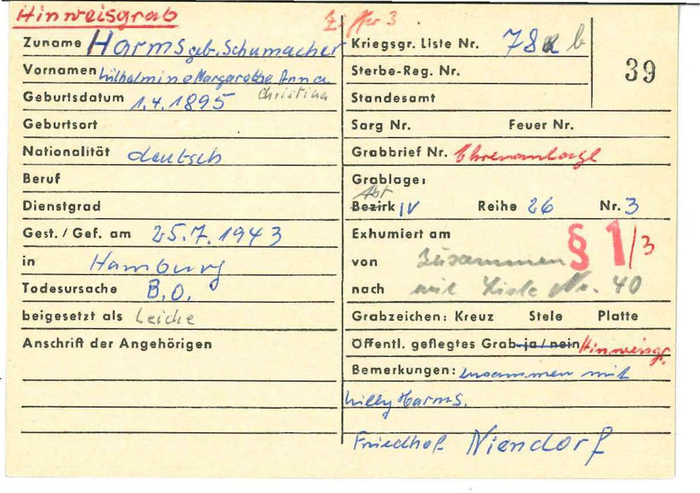 Hinweisgrab
Ziffer 3
Zuname Harms geb. Schumacher
Vornamen Wilhelmine Margarethe Anna
Christina
Geburtsdatum 1.4.1895
Geburtsort
Nationalität deutsch
Beruf
Dienstgrad
Gest. / Gef. am 25.7.1943
in Hamburg
Todesursache B.O.
beigesetzt als Leiche
Anschrift der Angehörigen
Kriegsgr. Liste Nr. 78 b
39
Sterbe-Reg. Nr.
Standesamt
Sarg Nr. Feuer Nr.
Grabbrief Nr. Ehrenanlage
Grablage:
Abt
Bezirk IV Reihe 26 Nr. 3
Exhumiert am § 1/3
von Zusammen
nach mit Liste Nr. 40
Grabzeichen: Kreuz Stele Platte
Öffentl. gepflegtes Grab ja / nein Hinweisgr.
Bemerkungen: zusammen mit
Willy Harms.
Friedhof Niendorf